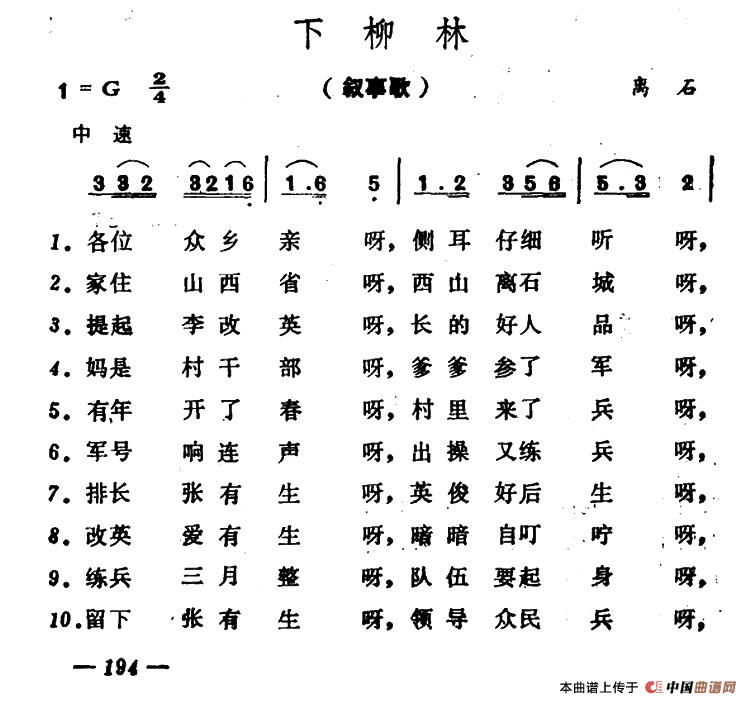 下柳林
1=G 2/4 （叙事歌） 离石
中速
3 3 2 3 2 1 6 | 1. 6 5 | 1. 2 3 5 6 | 5. 3 2 |
1. 各位 众乡亲 呀，侧耳仔细听 呀，
2. 家住 山西省 呀，西山离石城 呀，
3. 提起 李改英 呀，长的好人品 呀，
4. 妈是 村干部 呀，爹爹参了军 呀，
5. 有年 开了春 呀，村里来了兵 呀，
6. 军号 响连声 呀，出操又练兵 呀，
7. 排长 张有生 呀，英俊好后生 呀，
8. 改英 爱有生 呀，暗暗自叮咛 呀，
9. 练兵 三月整 呀，队伍要起身 呀，
10. 留下 张有生 呀，领导众民兵 呀，
— 194 —
本曲谱上传于 中国曲谱网